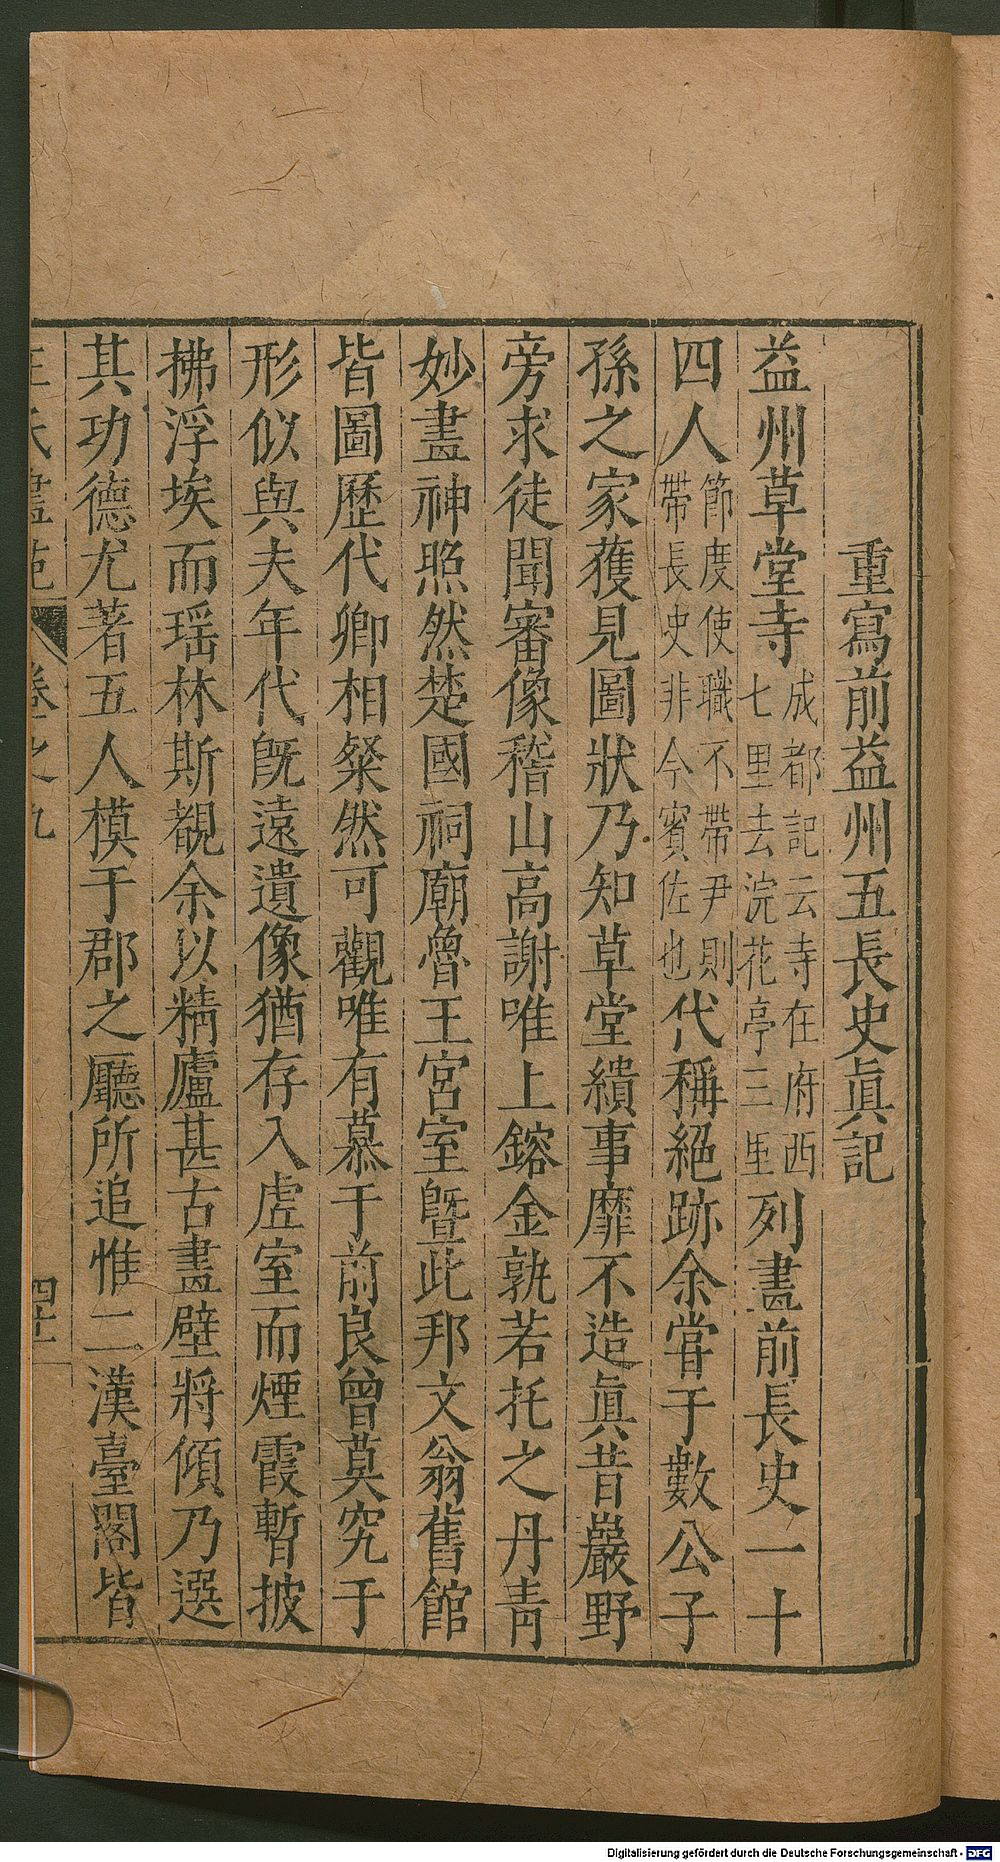 重寫前益州五長史眞記
益州草堂寺成都記云寺在府西七里去浣花亭三里列畫前長史一十
四人節度使職不帶尹則帶長史非今賓佐也代稱絕跡余嘗于數公子
孫之家獲見圖狀乃知草堂繢事靡不造眞昔巖野
旁求徒聞審像稽山高謝唯上鎔金孰若托之丹青
妙畫神照然楚國祠廟魯王宮室曁此邦文翁舊館
皆圖歷代卿相粲然可觀唯有慕于前良曾莫究于
形似與夫年代旣遠遺像猶存入虛室而煙霞暫披
拂浮埃而瑶林斯覩余以精廬甚古畫壁將傾乃選
其功德尤著五人模于郡之廳所追惟二漢臺閣皆
氏畫苑 卷之九
Digitalisierung gefördert durch die Deutsche Forschungsgemeinschaft - DFG